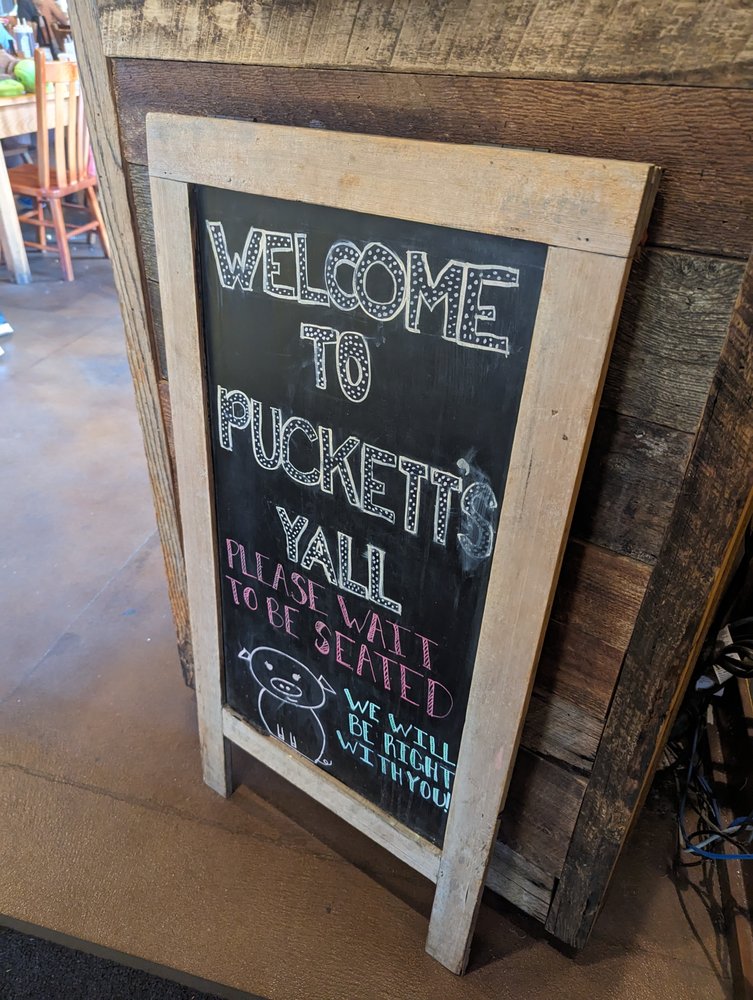 WELCOME
TO
PUCKETT'S
YALL
PLEASE WAIT
TO BE SEATED
WE WILL
BE RIGHT
WITH YOU!